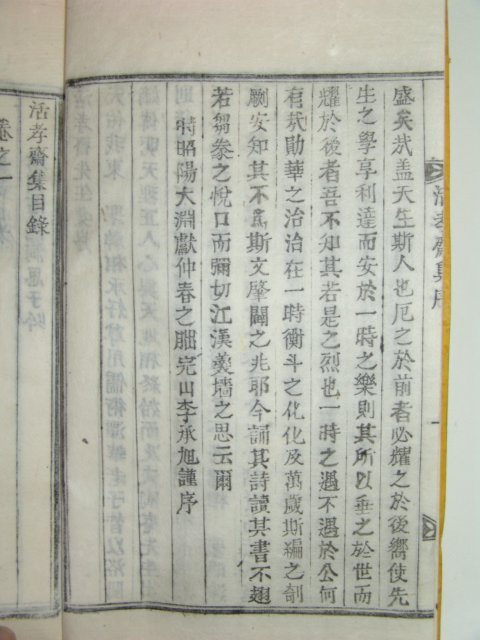 活孝齋集序
盛矣哉盖天生斯人也厄之於前者必耀之於後嚮使先
生之學享利達而安於一時之樂則其所以垂之於世而
耀於後者吾不知其若是之烈也一時之遇不遇於公何
有哉勛華之治洽在一時衡斗之化化及萬歲斯編之剞
劂安知其不爲斯文肇闢之兆耶今誦其詩讀其書不翅
若芻豢之悅口而彌切江漢羹墻之思云爾
時昭陽大淵獻仲春之朏完山李承旭謹序
活孝齋集目錄
卷之一